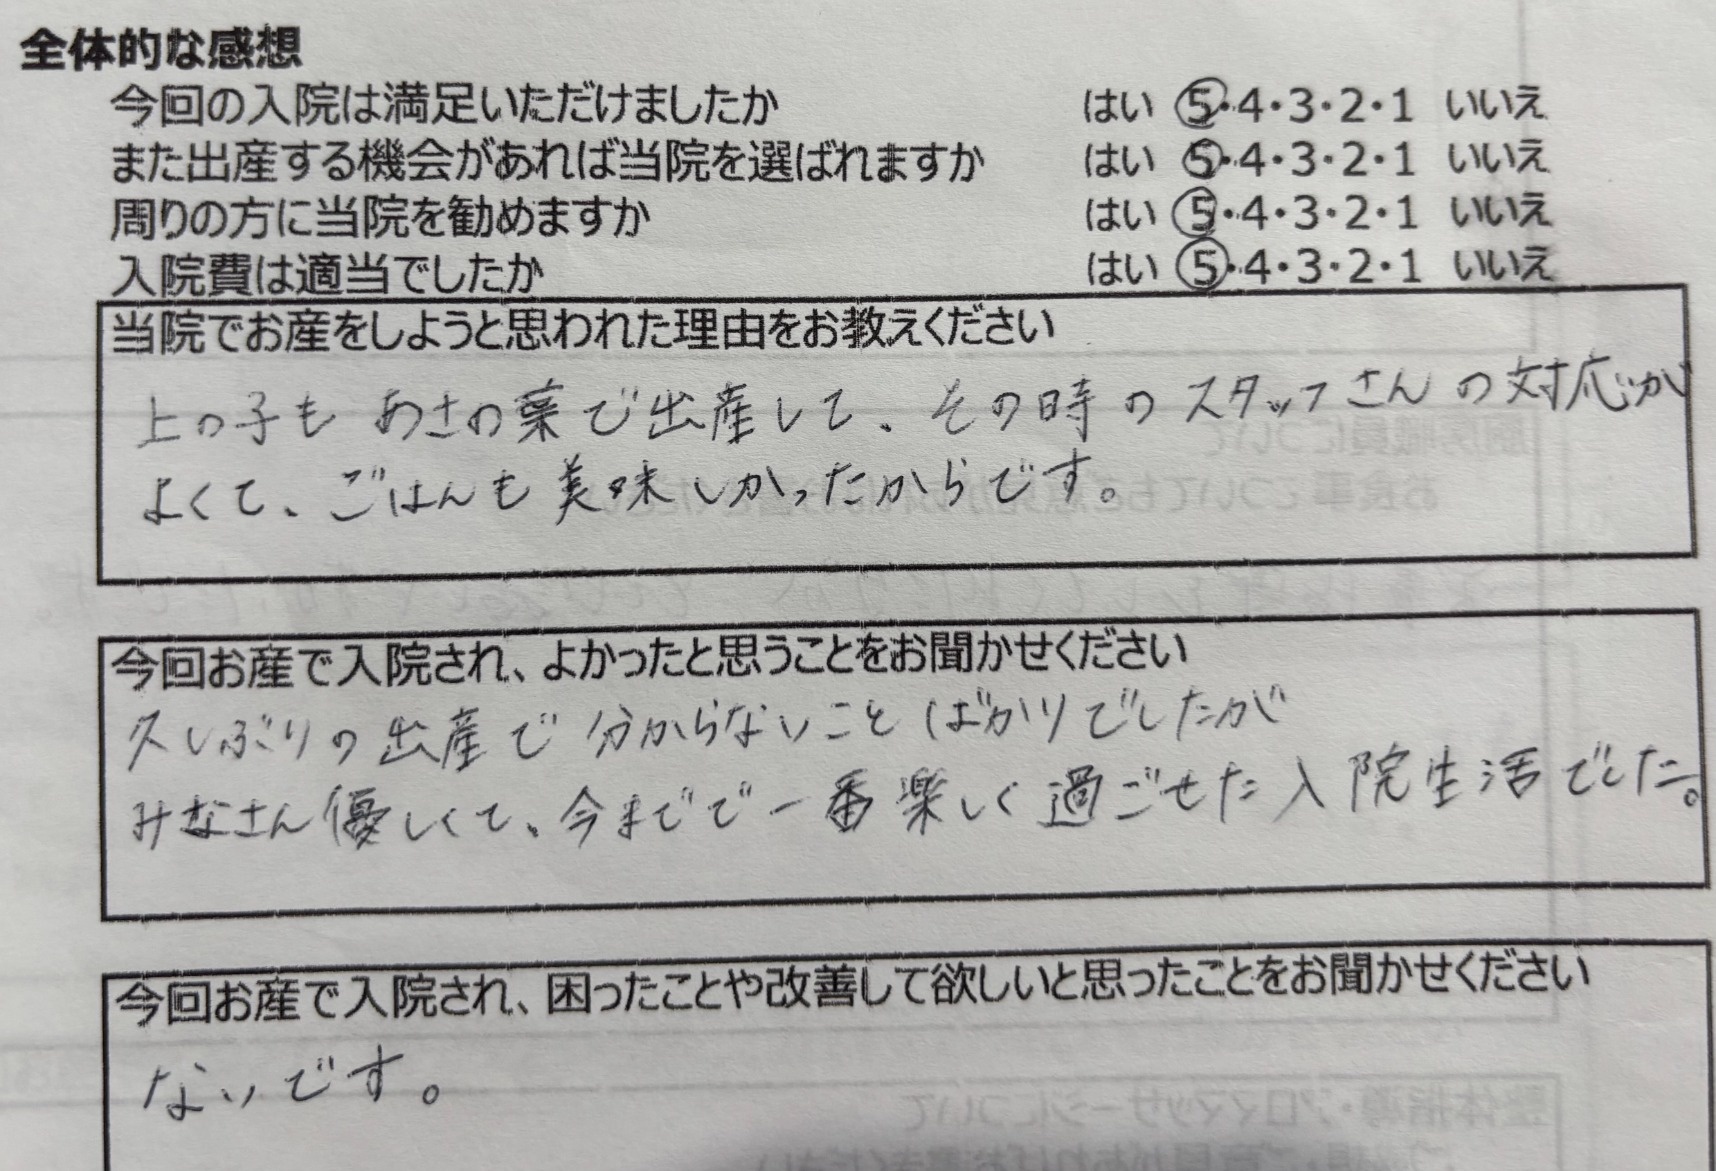 全体的な感想
今回の入院は満足いただけましたか はい 5・4・3・2・1 いいえ
また出産する機会があれば当院を選ばれますか はい 5・4・3・2・1 いいえ
周りの方に当院を勧めますか はい 5・4・3・2・1 いいえ
入院費は適当でしたか はい 5・4・3・2・1 いいえ
当院でお産をしようと思われた理由をお教えください
上の子も あさの葉で出産して、その時のスタッフさんの対応が
よくて、ごはんも美味しかったからです。
今回お産で入院され、よかったと思うことをお聞かせください
久しぶりの出産で分からないことばかりでしたが
みなさん優しくて、今までで一番楽しく過ごせた入院生活でした。
今回お産で入院され、困ったことや改善して欲しいと思ったことをお聞かせください
ないです。